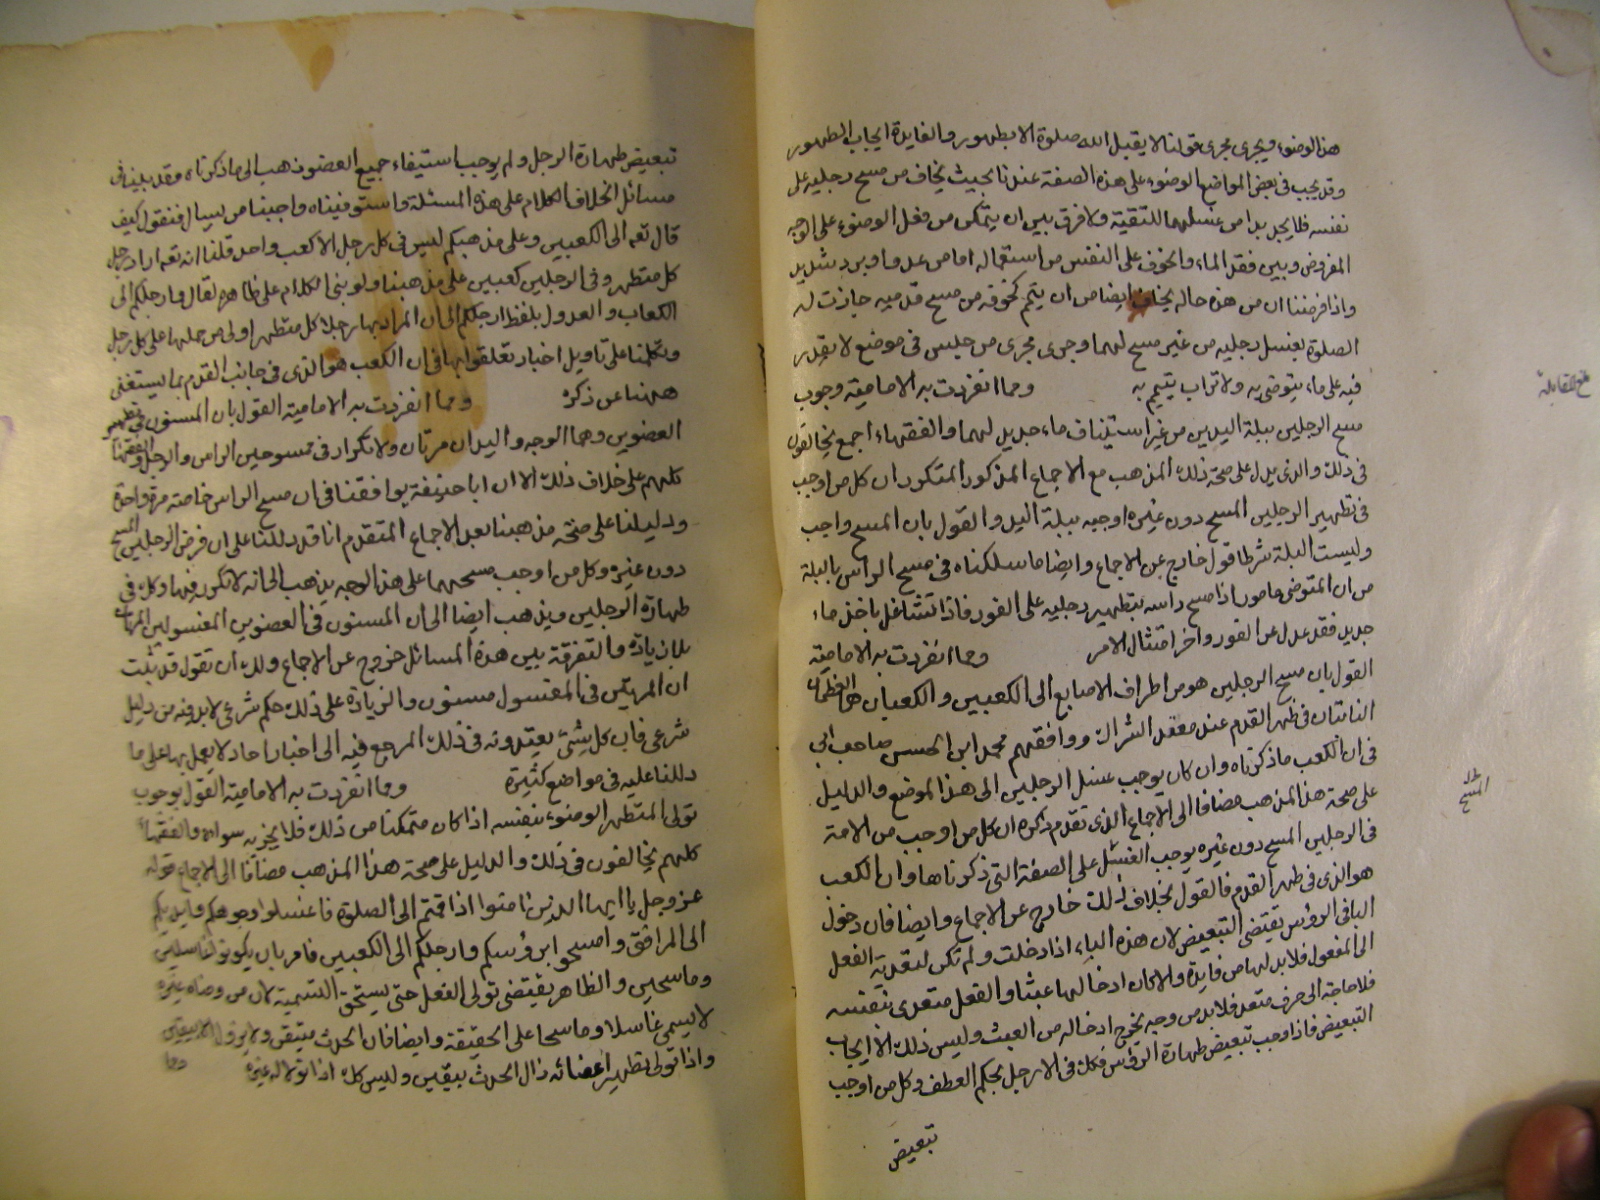 هذا الوضوء ويجرى مجرى قولنا لا يقبل الله صلوة الا بطهور والفايدة ايجاب الطهور
وقد يجب فى بعض المواضع الوضوء على هذه الصفة عندنا بحيث يخاف من مسح رجليه على
نفسه فلا يجد بدا من غسلهما للتقية ولا فرق بين ان يتمكن من فعل الوضوء على الوجه
المفروض وبين فقد الماء والخوف على النفس من استعماله اما من عدو او برد شديد
واذا فرضنا ان من هذه حاله يخاف ايضا من ان يتيمم كخوفه من مسح قدميه جازت له
الصلوة بغسل رجليه من غير مسح لهما وجرى مجرى من حبس فى موضع لا يقدر
فيه على ماء يتوضى به ولا تراب يتيمم به ومما انفردت به الامامية وجوب
مسح الرجلين ببلة اليدين من غير استيناف ماء جديد لهما والفقهاء اجمع يخالفون
فى ذلك والذى يدل على صحة ذلك المذهب مع الاجماع المذكور المتكرر ان كل من اوجب
فى تطهير الرجلين المسح دون غيره اوجبه ببلة اليد والقول بان المسح واجب
وليست البلة شرطا قول خارج عن الاجماع وايضا ما سلكناه فى مسح الراس بالبلة
من ان المتوضى مامور اذا مسح راسه بتطهير رجليه على الفور فاذا تشاغل باخذ ماء
جديد فقد عدل عن الفور واخر امتثال الامر ومما انفردت به الامامية
القول بان مسح الرجلين هو من اطراف الاصابع الى الكعبين والكعبان هما العظمان
الناتئان فى ظهر القدم عند معقد الشراك ووافقهم محمد ابن الحسن صاحب ابى
فى ان الكعب ماذكرناه وان كان يوجب غسل الرجلين الى هذا الموضع والدليل
على صحة هذا المذهب مضافا الى الاجماع الذى تقدم ذكره ان كل من اوجب من الامة
فى الرجلين المسح دون غيره يوجب الغسل على الصفة التى ذكرناها وان الكعب
هو الذى فى ظهر القدم فالقول بخلاف ذلك خارج عن الاجماع وايضا فان دخول
البا فى الرؤس يقتضى التبعيض لان هذه الباء اذا دخلت ولم تكن لتعدية الفعل
الى المفعول فلا بد لها من فايدة والا كان ادخالها عبثا والفعل متعدى بنفسه
فلا حاجة الى حرف متعد فلا بد من وجه يخرج ادخاله من العبث وليس ذلك الا ايجاب
التبعيض فاذا وجب تبعيض طهارة الرؤس فكك فى الارجل بحكم العطف وكل من اوجب
تبعيض
بلغ المقابلة
المسح
تبعيض طهارة الرجل ولم يوجب استيفاء جميع العضو ذهب الى ماذكرناه وقد بلينا فى
مسائل الخلاف الكلام على هذه المسئلة واستوفيناه واجبنا من يسال فنقول كيف
قال تعه الى الكعبين وعلى مذهبكم ليس فى كل رجل الا كعب واحد قلنا انه تعه اراد رجل
كل متطهر وفى الرجلين كعبين على مذهبنا ولو بنى الكلام على ظاهره لقال وارجلكم الى
الكعاب والعدول بلفظ ارجلكم الى ان المراد بها رجلا كل متطهر اولى من حملها على كل رجل
وتكلمنا على تاويل اخبار تعلقوا بها فى ان الكعب هو الذى فى جانب القدم بما يستغنى
ههنا عن ذكره ومما انفردت به الامامية القول بان المسنون فى تطهير
العضوين وهما الوجه واليدان مرتان ولا تكرار فى ممسوحين الراس والرجل والفقهاء
كلهم على خلاف ذلك الا ان ابا حنيفة يوافقنا فى ان مسح الراس خاصة مرة واحدة
ودليلنا على صحة مذهبنا بعد الاجماع المتقدم انا قد دللنا على ان فرض الرجلين المسح
دون غيره وكل من اوجب مسحهما على هذا الوجه يذهب الى انه لا تكرر فيها وكك فى
طهارة الرجلين ويذهب ايضا الى ان المسنون فى العضوين المغسولين المرتان
بلا زيادة والتفرقة بين هذه المسائل خروج عن الاجماع ولك ان تقول قد ثبت
ان المرتين فى المغتسول مسنون والزيادة على ذلك حكم شرعى لابد فيه من دليل
شرعى فان كل شئ يعتمدونه فى ذلك المرجع فيه الى اخبار احاد لا يعمل بها على ما
دللنا عليه فى مواضع كثيرة ومما انفردت به الامامية القول بوجوب
تولى المتطهر الوضوء بنفسه اذا كان متمكنا من ذلك فلا يجزيه سواه والفقهاء
كلهم يخالفون فى ذلك والدليل على صحة هذا المذهب مضافا الى الاجماع قوله
عز وجل يا ايها الذين امنوا اذا قمتم الى الصلوة فاغسلوا وجوهكم وايديكم
الى المرافق وامسحوا برؤسكم وارجلكم الى الكعبين فامر بان يكونوا غاسلين
وماسحين والظاهر يقتضى تولى الفعل حتى يستحق التسمية لان من وضاه غيره
لا يسمى غاسلا وماسحا على الحقيقة وايضا فان الحدث متيقن ولا يزول الا بيقين
واذا تولى تطهير اعضائه زال الحدث بيقين وليس كك اذا تولاه غيره وما